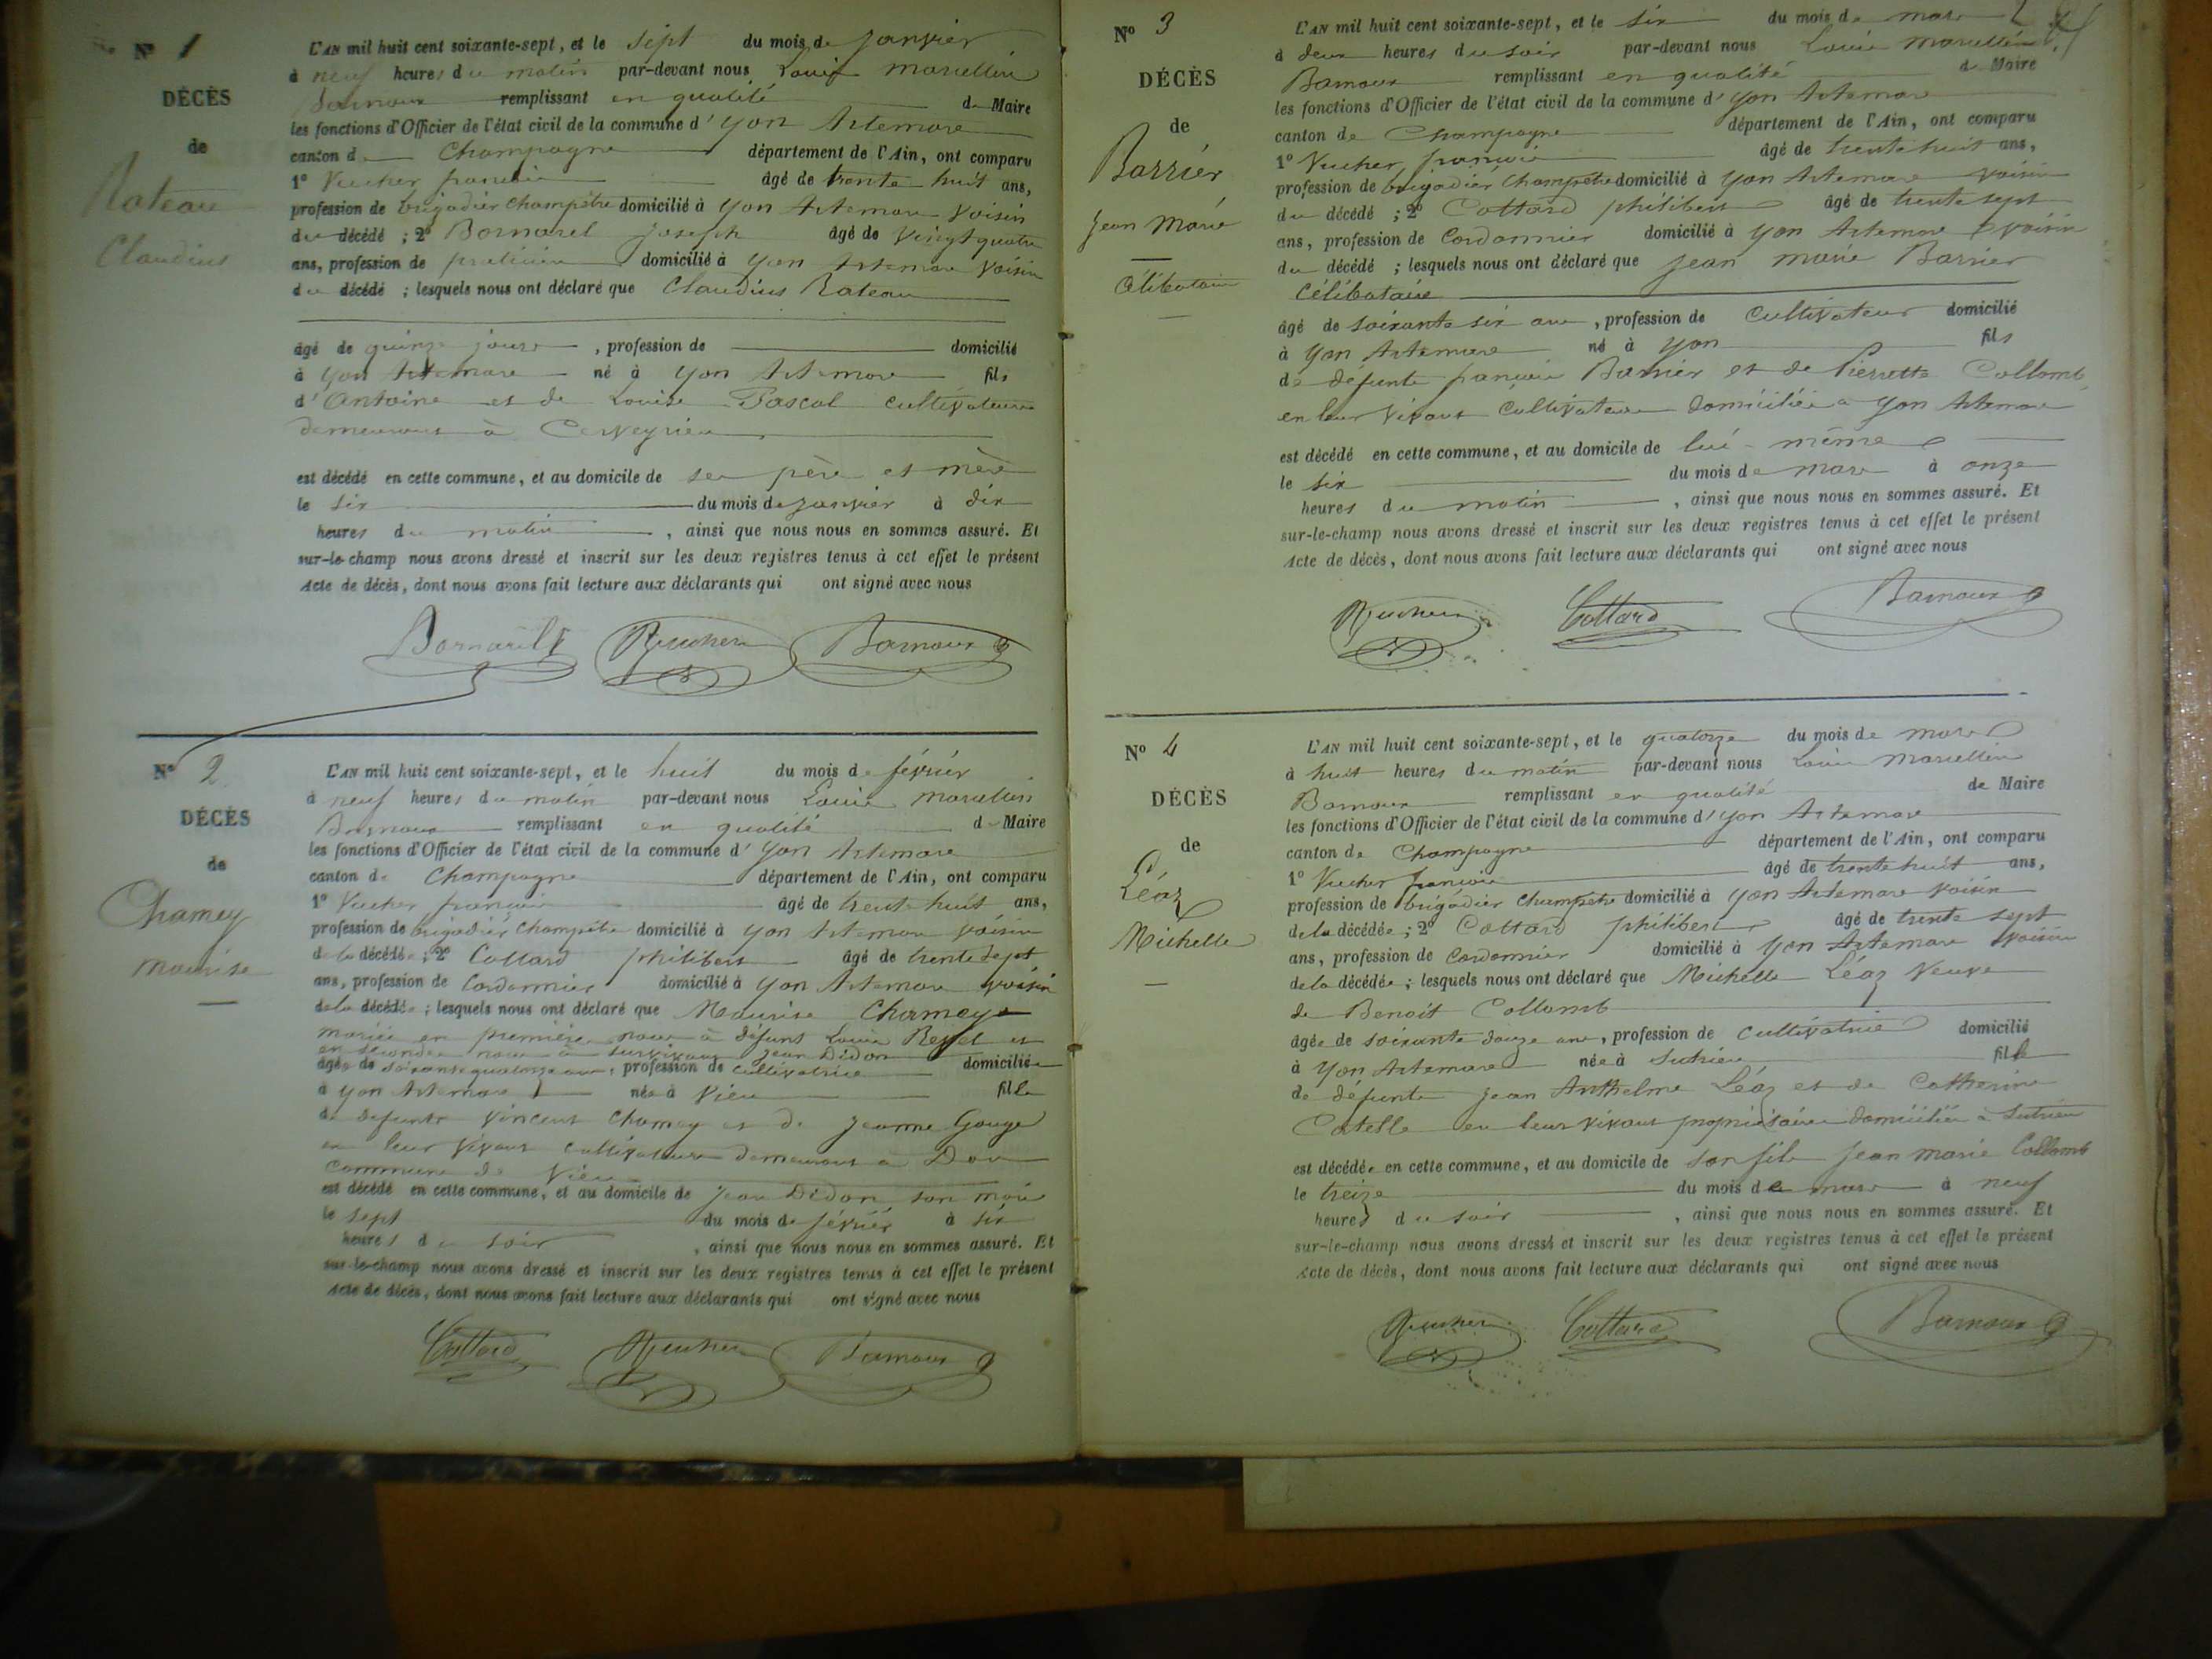 N° 1
DÉCÈS
de
Rateau
Claudius
L'AN mil huit cent soixante-sept, et le sept du mois de janvier
à neuf heures du matin par-devant nous Louis Marcellin
Barnoux remplissant en qualité de Maire
les fonctions d'Officier de l'état civil de la commune d'yon Artemare
canton de Champagne département de l'Ain, ont comparu
1° Vucher françois âgé de trente huit ans,
profession de brigadier champêtre domicilié à yon Artemare voisin
du décédé ; 2° Bornarel Joseph âgé de vingt quatre
ans, profession de praticien domicilié à yon Artemare voisin
du décédé ; lesquels nous ont déclaré que Claudius Rateau
âgé de quinze jours , profession de domicilié
à yon Artemare né à yon Artemare fils
d'Antoine et de Louise Pascal cultivateurs
demeurant à Cerveyrieu
est décédé en cette commune, et au domicile de ses père et mère
le six du mois de janvier à dix
heures du matin , ainsi que nous nous en sommes assuré. Et
sur-le-champ nous avons dressé et inscrit sur les deux registres tenus à cet effet le présent
Acte de décès, dont nous avons fait lecture aux déclarants qui ont signé avec nous
Bornarel Vucher Barnoux
N° 2
DÉCÈS
de
Chamey
Maurise
L'AN mil huit cent soixante-sept, et le huit du mois de février
à neuf heures du matin par-devant nous Louis Marcellin
Barnoux remplissant en qualité de Maire
les fonctions d'Officier de l'état civil de la commune d'yon Artemare
canton de Champagne département de l'Ain, ont comparu
1° Vucher françois âgé de trente huit ans,
profession de brigadier champêtre domicilié à yon Artemare voisin
de la décédée ; 2° Cottard philibert âgé de trente sept
ans, profession de Cordonnier domicilié à yon Artemare voisin
de la décédée ; lesquels nous ont déclaré que Maurise Chamey
mariée en première noce à défunt Louis et
en seconde noce à survivant Jean Didon
âgée de soixante quatorze ans, profession de cultivatrice domiciliée
à yon Artemare née à Vieu fille
de défunts Vincent Chamey et de Jeanne Gouge
en leur vivant cultivateurs demeurant à Don
commune de Vieu
est décédé en cette commune, et au domicile de Jean Didon son mari
le sept du mois de février à six
heures du soir , ainsi que nous nous en sommes assuré. Et
sur-le-champ nous avons dressé et inscrit sur les deux registres tenus à cet effet le présent
Acte de décès, dont nous avons fait lecture aux déclarants qui ont signé avec nous
Cottard Vucher Barnoux
N° 3
DÉCÈS
de
Barrier
Jean Marie
Célibataire
L'AN mil huit cent soixante-sept, et le six du mois de mars
à deux heures du soir par-devant nous Louis Marcellin
Barnoux remplissant en qualité de Maire
les fonctions d'Officier de l'état civil de la commune d'yon Artemare
canton de Champagne département de l'Ain, ont comparu
1° Vucher françois âgé de trente huit ans,
profession de brigadier champêtre domicilié à yon Artemare voisin
du décédé ; 2° Cottard philibert âgé de trente sept
ans, profession de Cordonnier domicilié à yon Artemare voisin
du décédé ; lesquels nous ont déclaré que Jean marie Barrier
célibataire
âgé de soixante six ans , profession de Cultivateur domicilié
à yon Artemare né à yon fils
de défunts françois Barrier et de Pierrette Collomb
en leur vivant Cultivateurs domiciliés à yon Artemare
est décédé en cette commune, et au domicile de lui-même
le six du mois de mars à onze
heures du matin , ainsi que nous nous en sommes assuré. Et
sur-le-champ nous avons dressé et inscrit sur les deux registres tenus à cet effet le présent
Acte de décès, dont nous avons fait lecture aux déclarants qui ont signé avec nous
Vucher Cottard Barnoux
N° 4
DÉCÈS
de
Léaz
Michelle
L'AN mil huit cent soixante-sept, et le quatorze du mois de mars
à huit heures du matin par-devant nous Louis Marcellin
Barnoux remplissant en qualité de Maire
les fonctions d'Officier de l'état civil de la commune d'yon Artemare
canton de Champagne département de l'Ain, ont comparu
1° Vucher françois âgé de trente huit ans,
profession de brigadier champêtre domicilié à yon Artemare voisin
de la décédée ; 2° Cottard philibert âgé de trente sept
ans, profession de Cordonnier domicilié à yon Artemare voisin
de la décédée ; lesquels nous ont déclaré que Michelle Léaz Veuve
de Benoît Collomb
âgée de soixante douze ans, profession de cultivatrice domicilié
à yon Artemare née à Sutrieu fille
de défunts Jean Anthelme Léaz et de Catherine
Catelle en leur vivant propriétaires domiciliés à Sutrieu
est décédée en cette commune, et au domicile de son fils Jean marie Collomb
le treize du mois de mars à neuf
heures du soir , ainsi que nous nous en sommes assuré. Et
sur-le-champ nous avons dressé et inscrit sur les deux registres tenus à cet effet le présent
Acte de décès, dont nous avons fait lecture aux déclarants qui ont signé avec nous
Vucher Cottard Barnoux